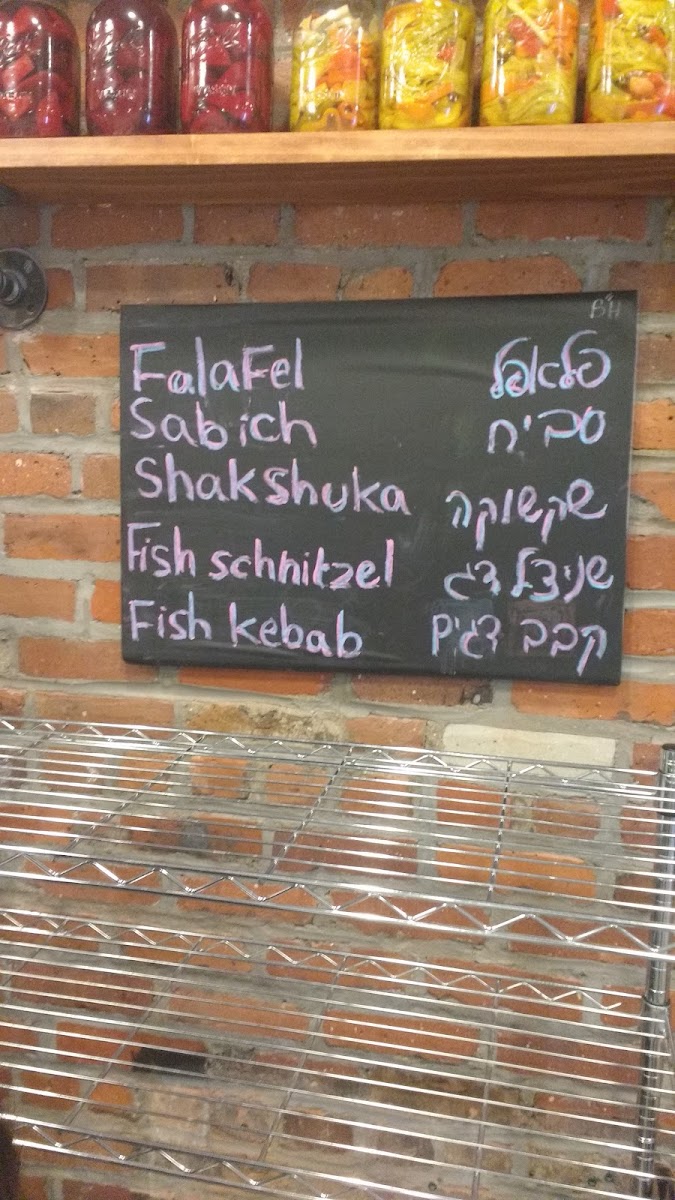 B"H
Falafel פלאפל
Sabich סביח
Shakshuka שקשוקה
Fish schnitzel שניצל דג
Fish kebab קבב דגים